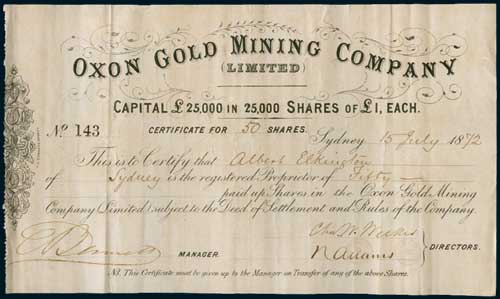 OXON GOLD MINING COMPANY
(LIMITED)
CAPITAL £25,000 IN 25,000 SHARES OF £1, EACH.
No 143
CERTIFICATE FOR 50 SHARES.
Sydney 15 July 1872
This is to Certify that Albert Elkington
of Sydney is the registered Proprietor of Fifty
paid up Shares in the Oxon Gold Mining
Company Limited subject to the Deed of Settlement and Rules of the Company.
MANAGER.
Chas W. Weekes
N Adams
DIRECTORS.
N.B. This Certificate must be given up to the Manager on Transfer of any of the above Shares.